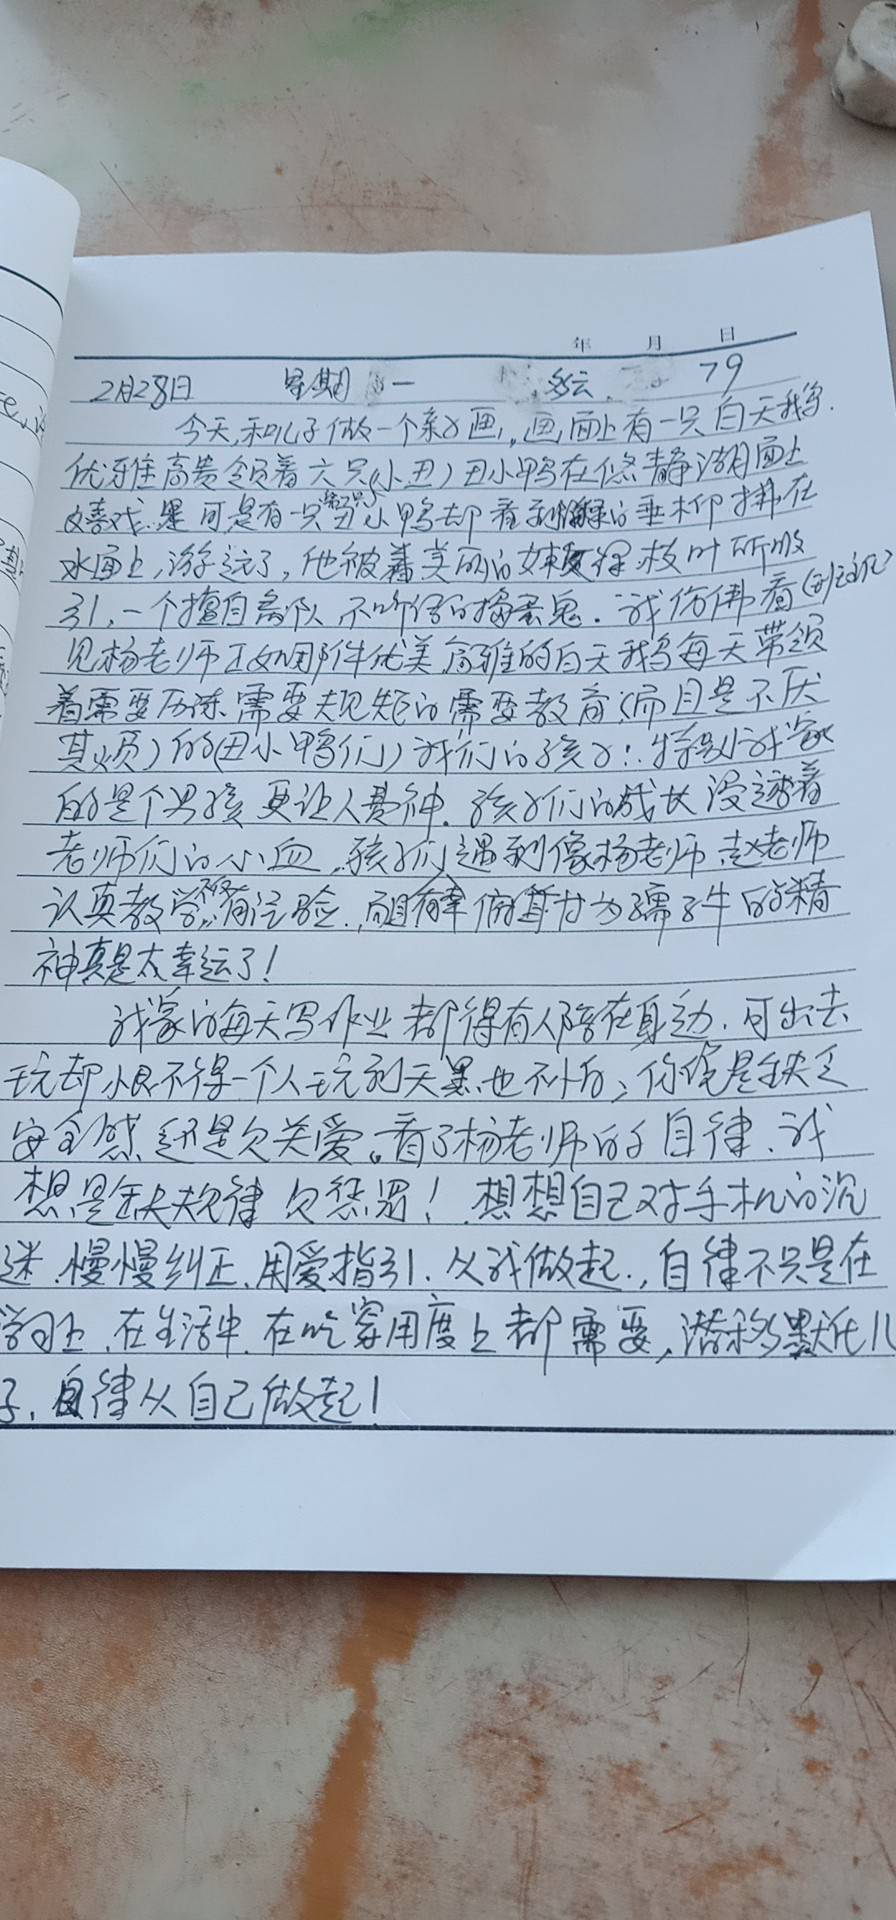 年 月 日
2月28日 星期一 多云 79
今天,和儿子做一个亲子画,画面上有一只白天鹅
优雅高贵领着六只(小丑)丑小鸭在悠静湖面上
嬉戏. 可是有一只丑小鸭却看到的垂柳拂在
水面上,游远了,他被着美丽的枝叶所吸
引,一个擅自离队不听话的捣蛋鬼.我仿佛看(班主任)
见杨老师正如那件优美高雅的白天鹅每天带领
着需要历练需要规矩的需要教育(而且是不厌
其烦)的(丑小鸭们)我们的孩子!特别我家
的是个男孩更让人费神.孩子们的成长浸透着
老师们的心血,孩子们遇到像杨老师.赵老师
认真教学,有经验.,而且有俯首甘为孺子牛的精
神真是太幸运了!
我家的每天写作业都得有人陪在身边.可出去
玩却恨不得一个人玩到天黑也不怕;你说是缺乏
安全感还是欠关爱。看了杨老师的自律.我
想是缺规律欠惩罚!想想自己对手机的沉
迷.慢慢纠正.用爱指引.从我做起.,自律不只是在
学习上.在生活中.在吃穿用度上都需要,潜移默化儿
子.自律从自己做起!